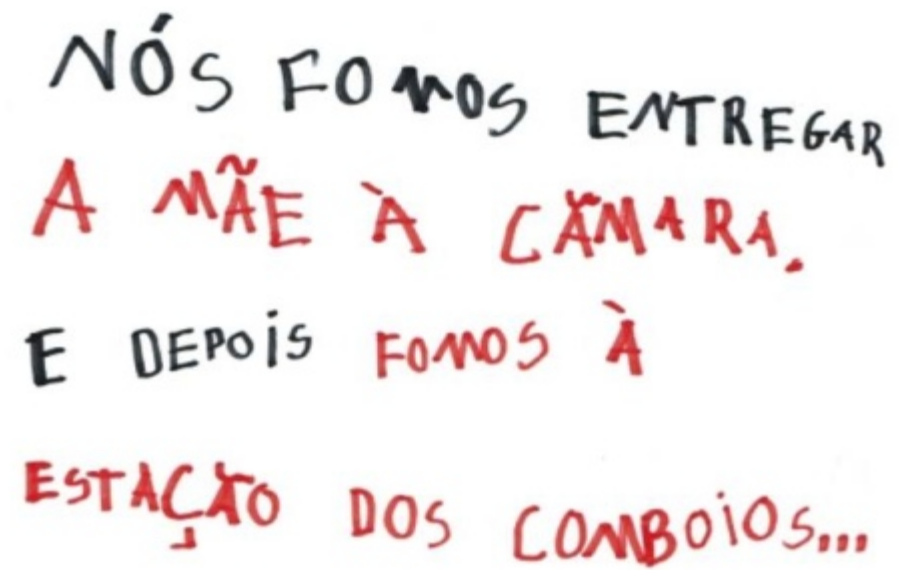 NÓS FOMOS ENTREGAR
A MÃE À CÃMARA.
E DEPOiS FOMOS À
ESTAÇÃO DOS COMBOiOS...